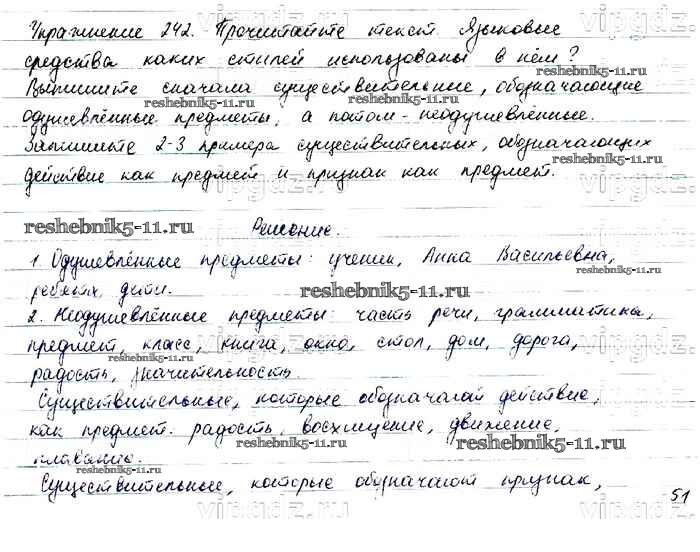 Упражнение 242. Прочитайте текст. Языковые
средства каких стилей использованы в нём?
Выпишите сначала существительные, обозначающие
reshebnik5-11.ru
одушевлённые предметы, а потом - неодушевлённые.
Запишите 2-3 примера существительных, обозначающих
reshebnik5-11.ru
действие как предмет и признак как предмет.
reshebnik5-11.ru
Решение.
1. Одушевлённые предметы: ученик, Анна Васильевна,
reshebnik5-11.ru
ребята, дети.
reshebnik5-11.ru
2. Неодушевлённые предметы: часть речи, грамматика,
предмет, класс, книга, окно, стол, дом, дорога,
reshebnik5-11.ru
радость, значительность.
Существительные, которые обозначают действие,
как предмет: радость, восхищение, движение,
reshebnik5-11.ru
reshebnik5-11.ru
плавание.
reshebnik5-11.ru
Существительные, которые обозначают признак,
51
vipgdz.ru